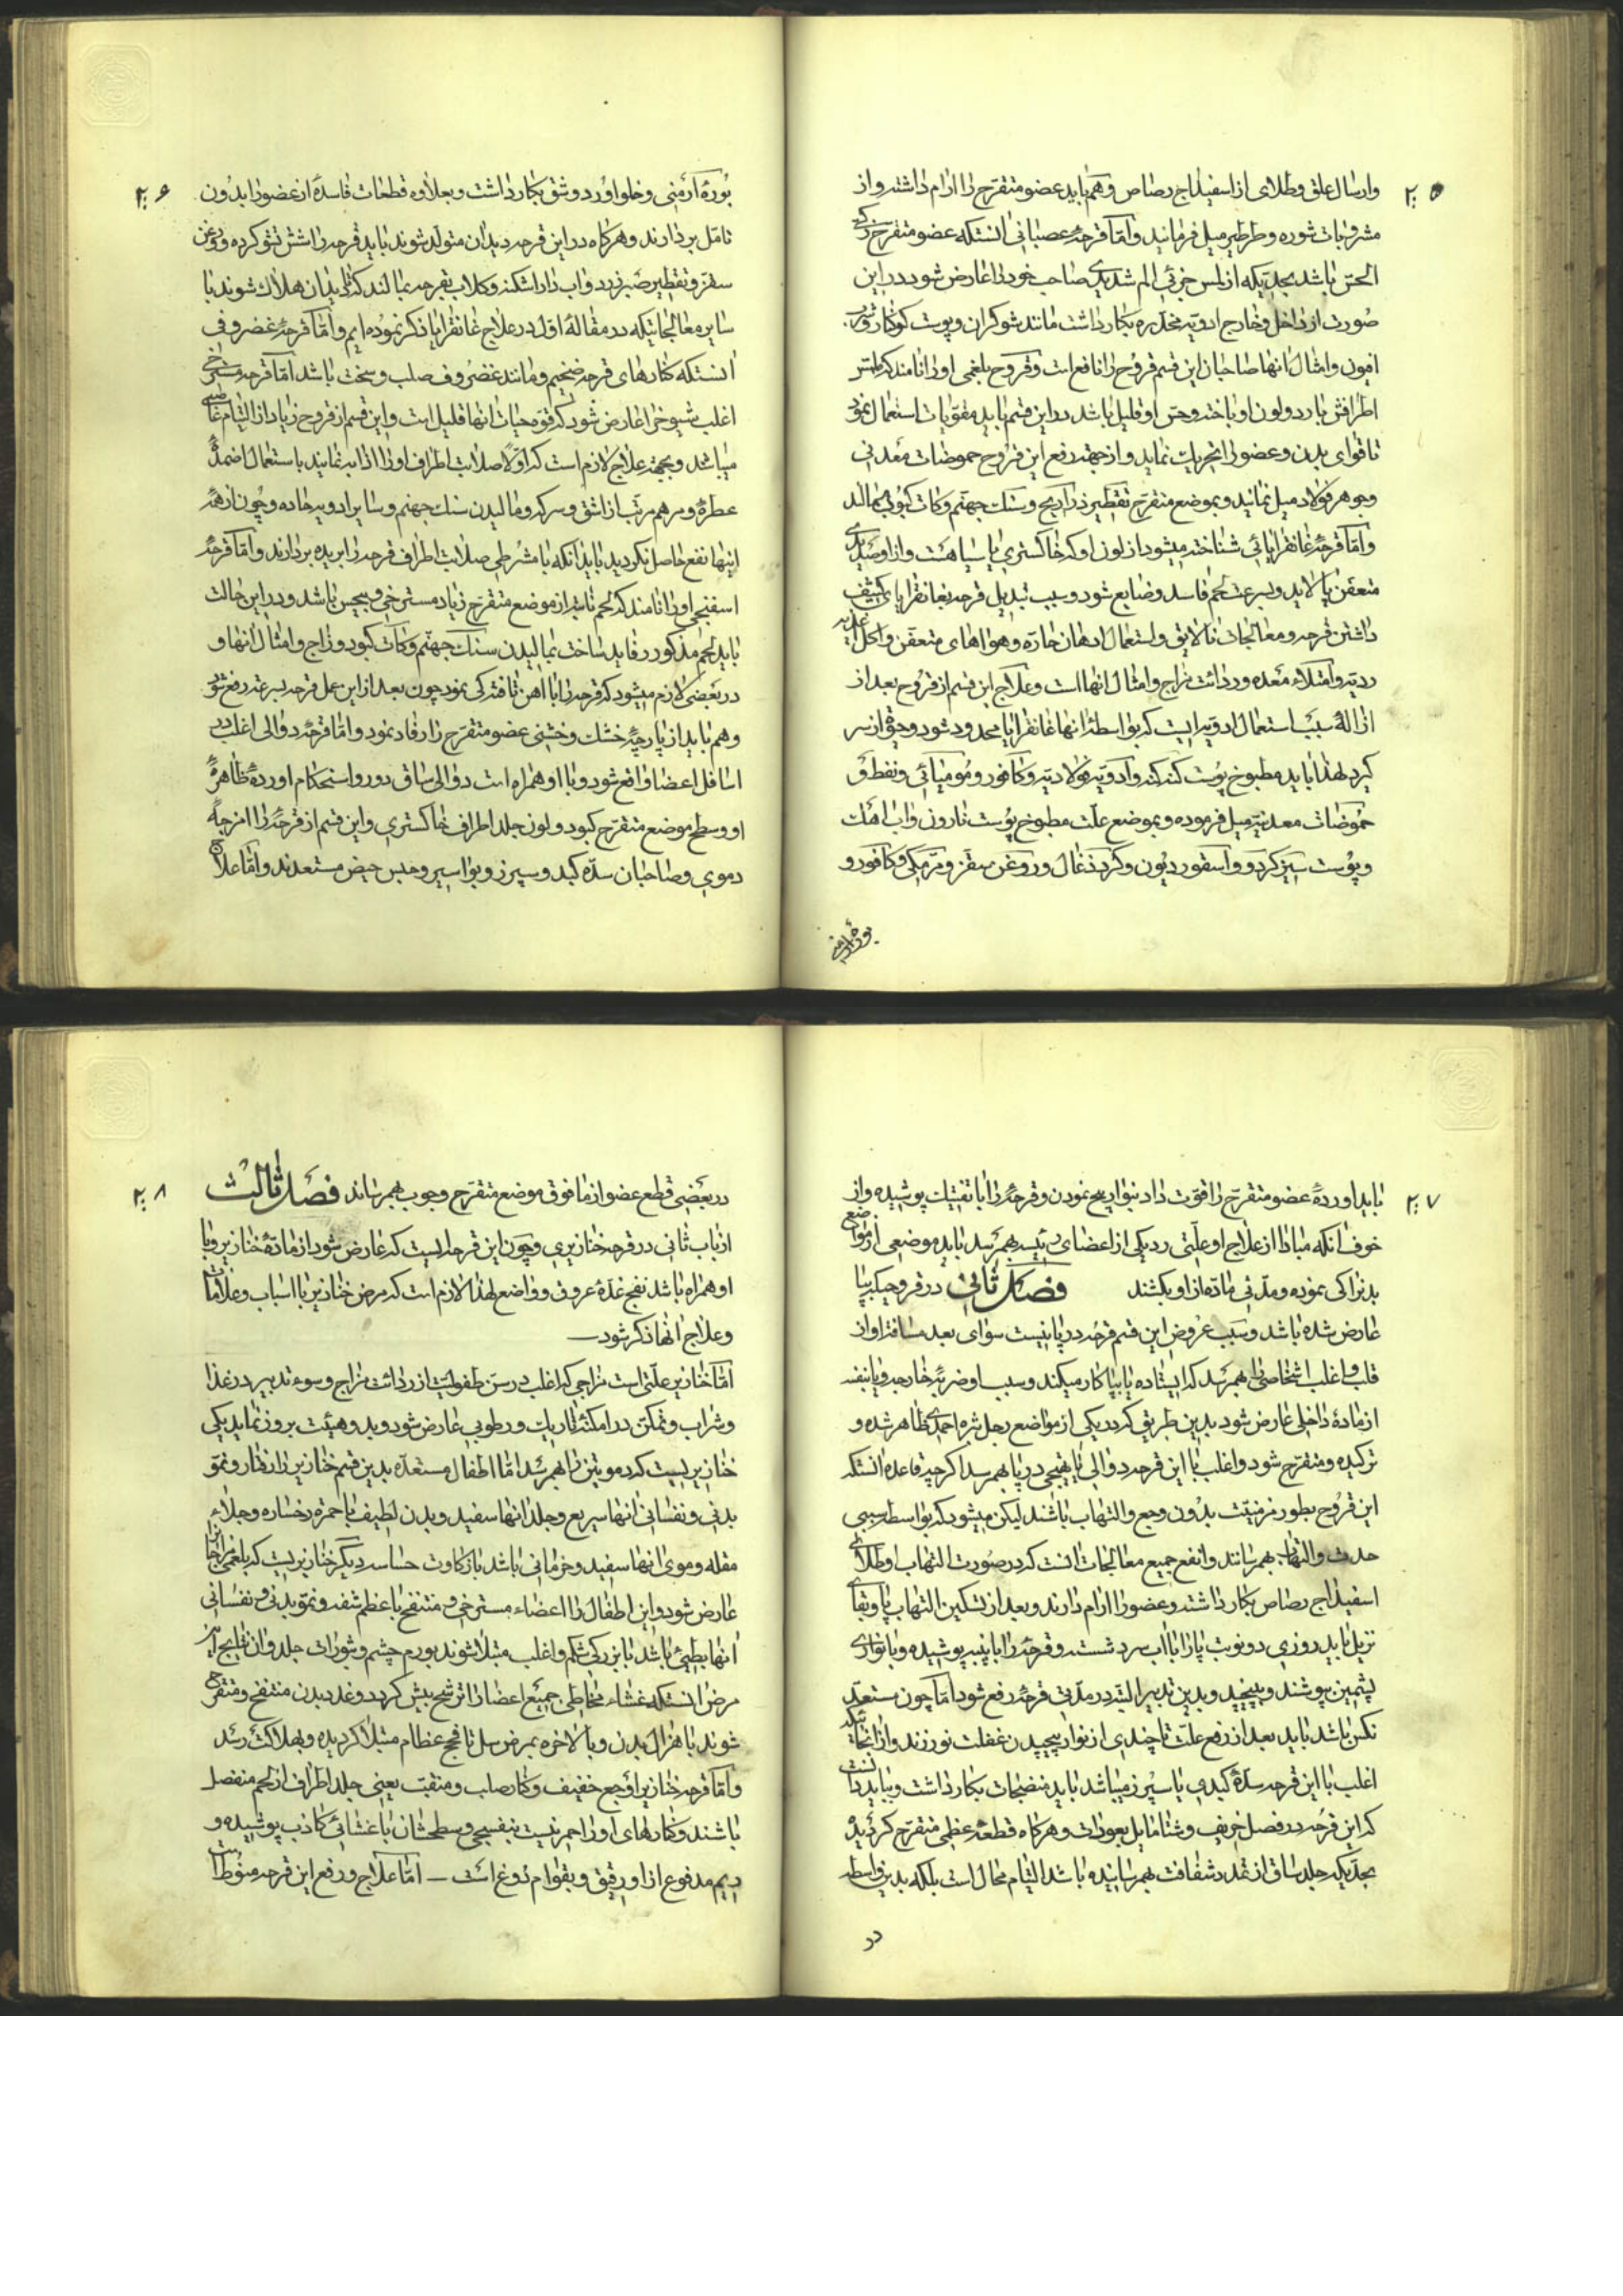 ۲۰۵
وارسال علق وطلای از اسفیداج رصاص وهم باید عضو متقرح را ارام داشته واز
مشروبات شوره وطرطیر میل فرمایند واما قرحهٔ عصبانی انستکه عضو متقرح ذکی
الحس باشد بحدیکه از لمس جزئی الم شدیدی صاحب خود را عارض شود در این
صورت از داخل وخارج ادویه مخدره بکار داشت مانند شوکران وپوست کوکنار
افیون وامثال انها صاحبان این قسم قروح را نافع است وقروح بلغمی او را نامند که
اطرافش بارد ولون او باخته وحس او قلیل باشد در این قسم باید مقویات استعمال نمود
تا قوای بدن وعضو را تحریک نماید واز جهة رفع این قروح حموضات معدنی
وجوهر فولاد میل نمایند وبموضع متقرح تقطیر ذراریح وسنک جهنم وکات کبود بمالند
واما قرحهٔ غانغرایائی شناخته میشود از لون او که خاکستری یا سیاهست واز او صدیدی
متعفن پالاید وبسرعت لحم فاسد وضایع شود وسبب تبدیل قرحه بغانغرایا کثیف
داشتن قرحه ومعالجات نالایق واستعمال ادهان حاره وهواهای متعفن واکل اغذیه
ردیه وامتلاء معده وردائت مزاج وامثال انها است وعلاج این قسم از قروح بعد از
ازالهٔ سبب استعمال ادویه ایست که بواسطهٔ انها غانغرایا محدود شود وحق از سر
کیرد لهذا باید مطبوخ پوست کنه کنه وادویه فولادیه وکافور ومومیائی ونفط و
حموضات معدنیه میل فرموده وبموضع علت مطبوخ پوست نارون واب اهک
وپوست سبز کردو واسقوردیون وکرد ذغال وروغن سقز ومرمکی وکافور و
بورهٔ ارمنی
۲۰۶
بورهٔ ارمنی وخلو اورد وشق بکار داشت وبعلاوه قطعات فاسدهٔ از عضو را بدون
تامل بردارند وهرکاه در این قرحه دیدان متولد شوند باید قرحه را شش تشو کرده وروغن
سقز وتقطیر صبر زرد واب داراشکنه وکلاب بقرحه بمالند که دیدان هلاک شوند با
سایر معالجاتیکه در مقالهٔ اول در علاج غانغرایا ذکر نموده ایم واما قرحهٔ غضروفی
انستکه کنارهای قرحه ضخیم ومانند غضروف صلب وسخت باشد اما قرحه مسترخی
اغلب شیوخ را عارض شود که قوه حیات انها قلیل است واین قسم از قروح زیاد از التیام عاصی
میباشد وبجهة علاج لازم است که اولا صلابت اطراف او را اذابه نمایند باستعمال اضمدهٔ
عطره ومرهم مرتب از اشق وسرکه ومالیدن سنک جهنم وسایر ادویه حاده وچون از همه
اینها نفع حاصل نکردید باید انکه با مشرطی صلابت اطراف قرحه را بریده بردارند واما قرحهٔ
اسفنجی او را نامند که لحم نابته از موضع متقرح زیاد مسترخی وبیحس باشد ودر این حالت
باید لحم مذکور را فاید ساخت بمالیدن سنک جهنم وکات کبود وزاج وامثال انها و
در بعضی لازم میشود که قرحه را با اهن تافته کی نمود چون بعد از این عمل قرحه بسرعت رفع شود
وهم باید از پارچهٔ خشک وخشنی عضو متقرح را رفاد نمود واما قرحهٔ دوالی اغلب در
اسافل اعضا واقع شود وبا او همراه است دوالی ساق ودور واستحکام اوردهٔ ظاهره
او وسطح موضع متقرح کبود ولون جلد اطراف خاکستری واین قسم از قرحه را امزجه
دموی وصاحبان سدّه کبد وسپرز وبواسیر وحبس حیض مستعدند واما علاج
۲۰۷
باید اوردهٔ عضو متقرح را قوت داد بنوار پیچ نمودن وقرحه را با تفتیک پوشیده واز
خوف انکه مبادا از علاج او علتی ردی در یکی از اعضای رئیسه بهم رسد باید موضعی از مواضع
بدن را کی نموده ومدتی ماده از او بکشند فصل ثانی در قروحیکه بپا
عارض شده باشد وسبب عروض این قسم قرحه در پا نیست سوای بعد مسافة او از
قلب واغلب اشخاصی را بهم رسد که ایستاده یا بپا کار میکنند وسبب او ضربهٔ خارجه ویا بنفسه
از مادهٔ داخلی عارض شود بدین طریق که در یکی از مواضع رجل بثره احمری ظاهر شده و
ترکیده ومتقرح شود واغلب با این قرحه دوالی یا تهیجی در پا بهم رسد اکرچه قاعده انستکه
این قروح بطور مزمنیت بدون وجع والتهاب باشند لیکن میشود که بواسطه سببی
حدت والتهاب بهم رسانند وانفع جمیع معالجات انست که در صورت التهاب او طلای
اسفیداج رصاص بکار داشته وعضو را ارام دارند وبعد از تسکین التهاب پا وبقای
نزیل باید روزی دو نوبت پا را با اب سرد شسته وقرحه را با پنبه پوشیده وبا نواری
پشمین بپوشند وبپیچند وبدین تدبیر البته در مدتی قرحه رفع شود اما چون مستعد
نکس باشد باید بعد از رفع علت تا چندی از نوار پیچیدن غفلت نورزند واز انجائیکه
اغلب با این قرحه سدهٔ کبدی یا سپرز میباشد باید منضجات بکار داشت وبباید دانست
که این قرحه در فصل خریف وشتا مایل بعودات وهرکاه قطعهٔ عظمی متقرح کردیده
بحدیکه جلد ساق از تمدد شفافت بهم رسانیده باشد التیام محال است بلکه بدین واسطه
در
۲۰۸
در بعضی قطع عضو از مافوق موضع متقرح وجوب بهم رساند فصل ثالث
از باب ثانی در قرحه خنازیری وچون این قرحه ایست که عارض شود از مادهٔ خنازیر ویا با
او همراه باشد نفج غدهٔ عروق ومواضع لهذا لازم است که مرض خنازیر با اسباب وعلامات
وعلاج انها ذکر شود
اما خنازیر علتی است مزاجی که اغلب در سن طفولیت از ردائت مزاج وسوء تدبیر در غذا
وشراب وتمکن در امکنهٔ تاریک ورطوبی عارض شود وبدو هیئت بروز نماید یکی
خنازیریست که دمویین را بهم رسد اما اطفال مستعده بدین قسم خنازیر را رفتار ونمو
بدنی ونفسانی انها سریع وجلد انها سفید وبدن لطیف با حمره رخساره وجلاء
مقله وموی انها سفید وخرمائی باشد با زکاوت حساسه دیکر خنازیریست که بلغمی مزاجان را
عارض شود واین اطفال را اعضاء مسترخی ومنتفخ با عظم شفه ونمو بدنی ونفسانی
انها بطیئ باشد با بزرکی شکم واغلب مبتلا شوند بورم چشم وبثورات جلد واز نتایج این
مرض انستکه غشاء مخاطی جمیع اعضا را ترشح بیش کردد وغدد بدن منتفخ ومتقرح
شوند با هزال بدن وبالاخره بمرض سل تا فجح عظام مبتلا کردیده وبهلاکت رسد
واما قرحه خنازیر را وجع خفیف وکنار صلب ومنقب یعنی جلد اطراف از لحم منفصل
باشند وکنارهای او را حمرتیست بنفسجی وسطحشان با غشائی کاذب پوشیده و
ریم مدفوع از او رقیق وبقوام دوغ است — اما علاج ورفع این قرحه منوط است